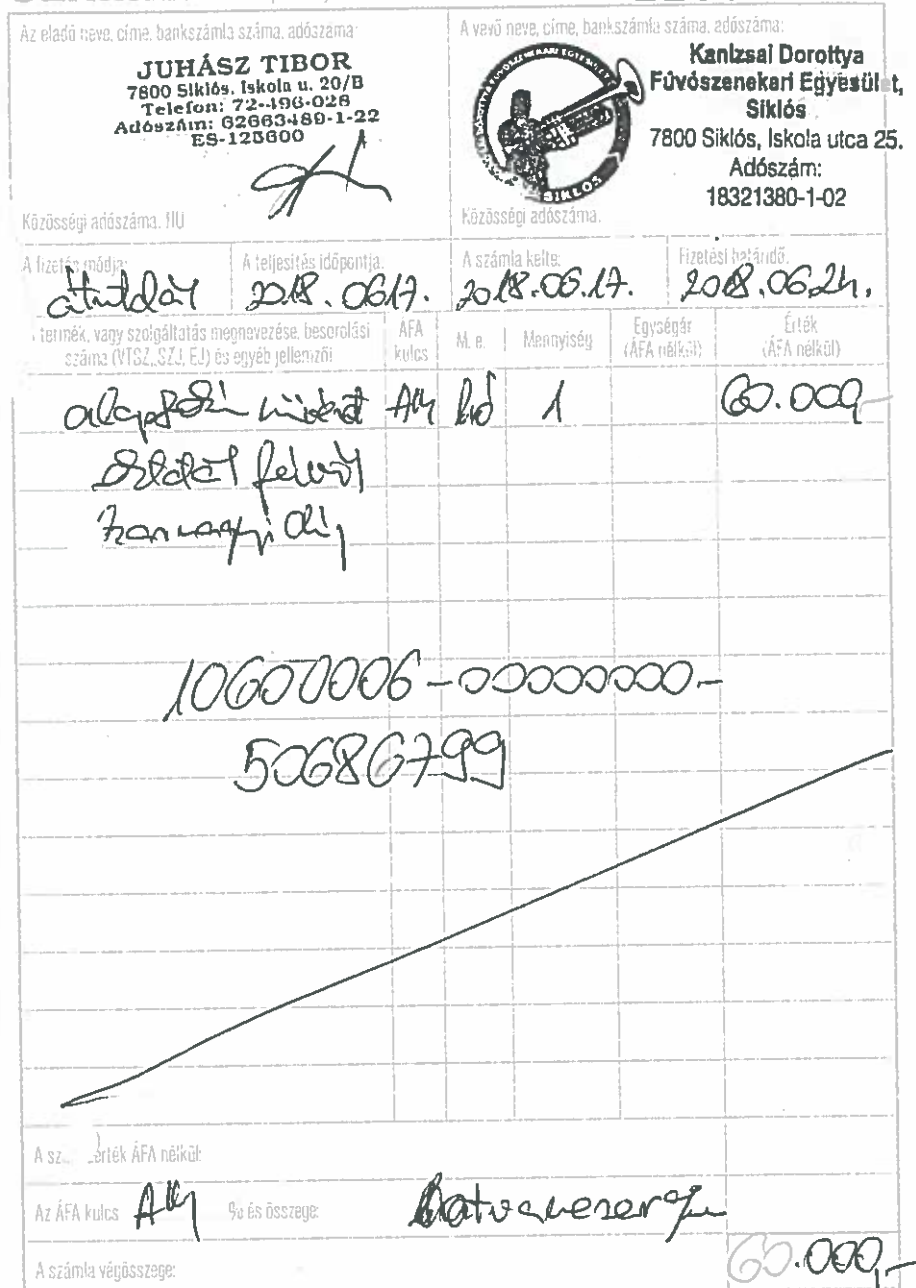 Az eladó neve, címe, bankszámla száma, adószáma:
JUHÁSZ TIBOR
7800 Siklós, Iskola u. 20/B
Telefon: 72-496-028
Adószám: 62663489-1-22
ES-125600
Közösségi adószáma. HU
A vevő neve, címe, bankszámla száma, adószáma:
SIKLÓS
Kanizsai Dorottya
Fúvószenekari Egyesület,
Siklós
7800 Siklós, Iskola utca 25.
Adószám:
18321380-1-02
Közösségi adószáma.
A fizetés módja: A teljesítés időpontja. A számla kelte: Fizetési határidő.
átutalás 2018.06.17. 2018.06.17. 2018.06.24.
termék, vagy szolgáltatás megnevezése, besorolási ÁFA M. e. Mennyiség Egységár Érték
száma (VTSZ, SZJ, EJ) és egyéb jellemzői kulcs (ÁFA nélkül) (ÁFA nélkül)
1 60.000,-
10600006-00000000-
50686799
A sz érték ÁFA nélkül:
Az ÁFA kulcs % és összege: Hatvanezer
A számla végösszege: 60.000,-